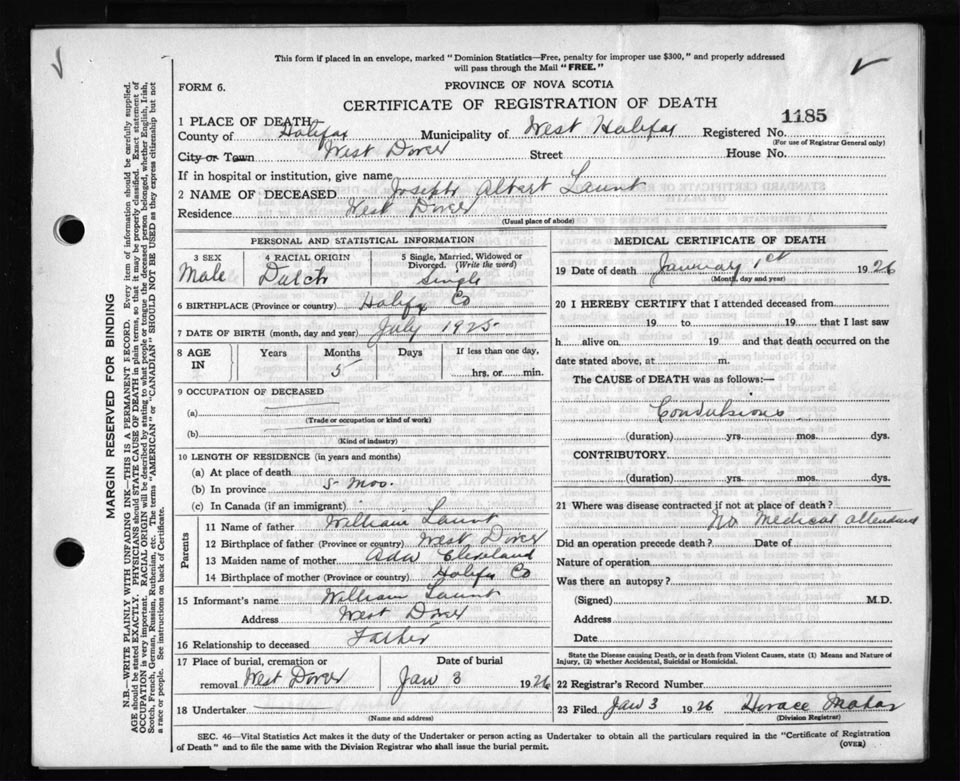 This form if placed in an envelope, marked "Dominion Statistics—Free, penalty for improper use $300," and properly addressed
will pass through the Mail "FREE."
FORM 6.
PROVINCE OF NOVA SCOTIA
CERTIFICATE OF REGISTRATION OF DEATH
1185
1 PLACE OF DEATH
County of Halifax Municipality of West Halifax Registered No.
(For use of Registrar General only)
City or Town West Dover Street House No.
If in hospital or institution, give name
2 NAME OF DECEASED Joseph Albert Launt
Residence West Dover
(Usual place of abode)
PERSONAL AND STATISTICAL INFORMATION
3 SEX
Male
4 RACIAL ORIGIN
Dutch
5 Single, Married, Widowed or
Divorced. (Write the word)
Single
6 BIRTHPLACE (Province or country) Halifax Co
7 DATE OF BIRTH (month, day and year) July 1925
8 AGE
IN
Years
Months
5
Days
If less than one day,
hrs. or min.
9 OCCUPATION OF DECEASED
(a)
(Trade or occupation or kind of work)
(b)
(Kind of industry)
10 LENGTH OF RESIDENCE (in years and months)
(a) At place of death
(b) In province 5 mos.
(c) In Canada (if an immigrant)
Parents
11 Name of father William Launt
12 Birthplace of father (Province or country) West Dover
13 Maiden name of mother Ada Cleveland
14 Birthplace of mother (Province or country) Halifax Co
15 Informant's name William Launt
Address West Dover
16 Relationship to deceased Father
17 Place of burial, cremation or
removal West Dover
Date of burial
Jan 3 1926
18 Undertaker
(Name and address)
MEDICAL CERTIFICATE OF DEATH
19 Date of death January 1st 1926
(Month, day and year)
20 I HEREBY CERTIFY that I attended deceased from
19 to 19 that I last saw
h alive on 19 and that death occurred on the
date stated above, at m.
The CAUSE of DEATH was as follows:—
Convulsions
(duration) yrs. mos. dys.
CONTRIBUTORY.
(duration) yrs. mos. dys.
21 Where was disease contracted if not at place of death?
No Medical attendant
Did an operation precede death? Date of
Nature of operation
Was there an autopsy?
(Signed) M.D.
Address
Date
State the Disease causing Death, or in death from Violent Causes, state (1) Means and Nature of
Injury, (2) whether Accidental, Suicidal or Homicidal.
22 Registrar's Record Number
23 Filed Jan 3 1926 Horace
(Division Registrar)
SEC. 46—Vital Statistics Act makes it the duty of the Undertaker or person acting as Undertaker to obtain all the particulars required in the "Certificate of Registration
of Death" and to file the same with the Division Registrar who shall issue the burial permit.
(OVER)
MARGIN RESERVED FOR BINDING
N.B.—WRITE PLAINLY WITH UNFADING INK—THIS IS A PERMANENT RECORD. Every item of information should be carefully supplied.
AGE should be stated EXACTLY. PHYSICIANS should STATE CAUSE OF DEATH in plain terms, so that it may be properly classified. Exact statement of
OCCUPATION is very important. RACIAL ORIGIN will be described by stating to what people or tongue the deceased person belonged, whether English, Irish,
Scotch, French, German, Russian, Ruthenian, etc. The terms "AMERICAN" or "CANADIAN" SHOULD NOT BE USED as they express citizenship but not
a race or people. See instructions on back of Certificate.